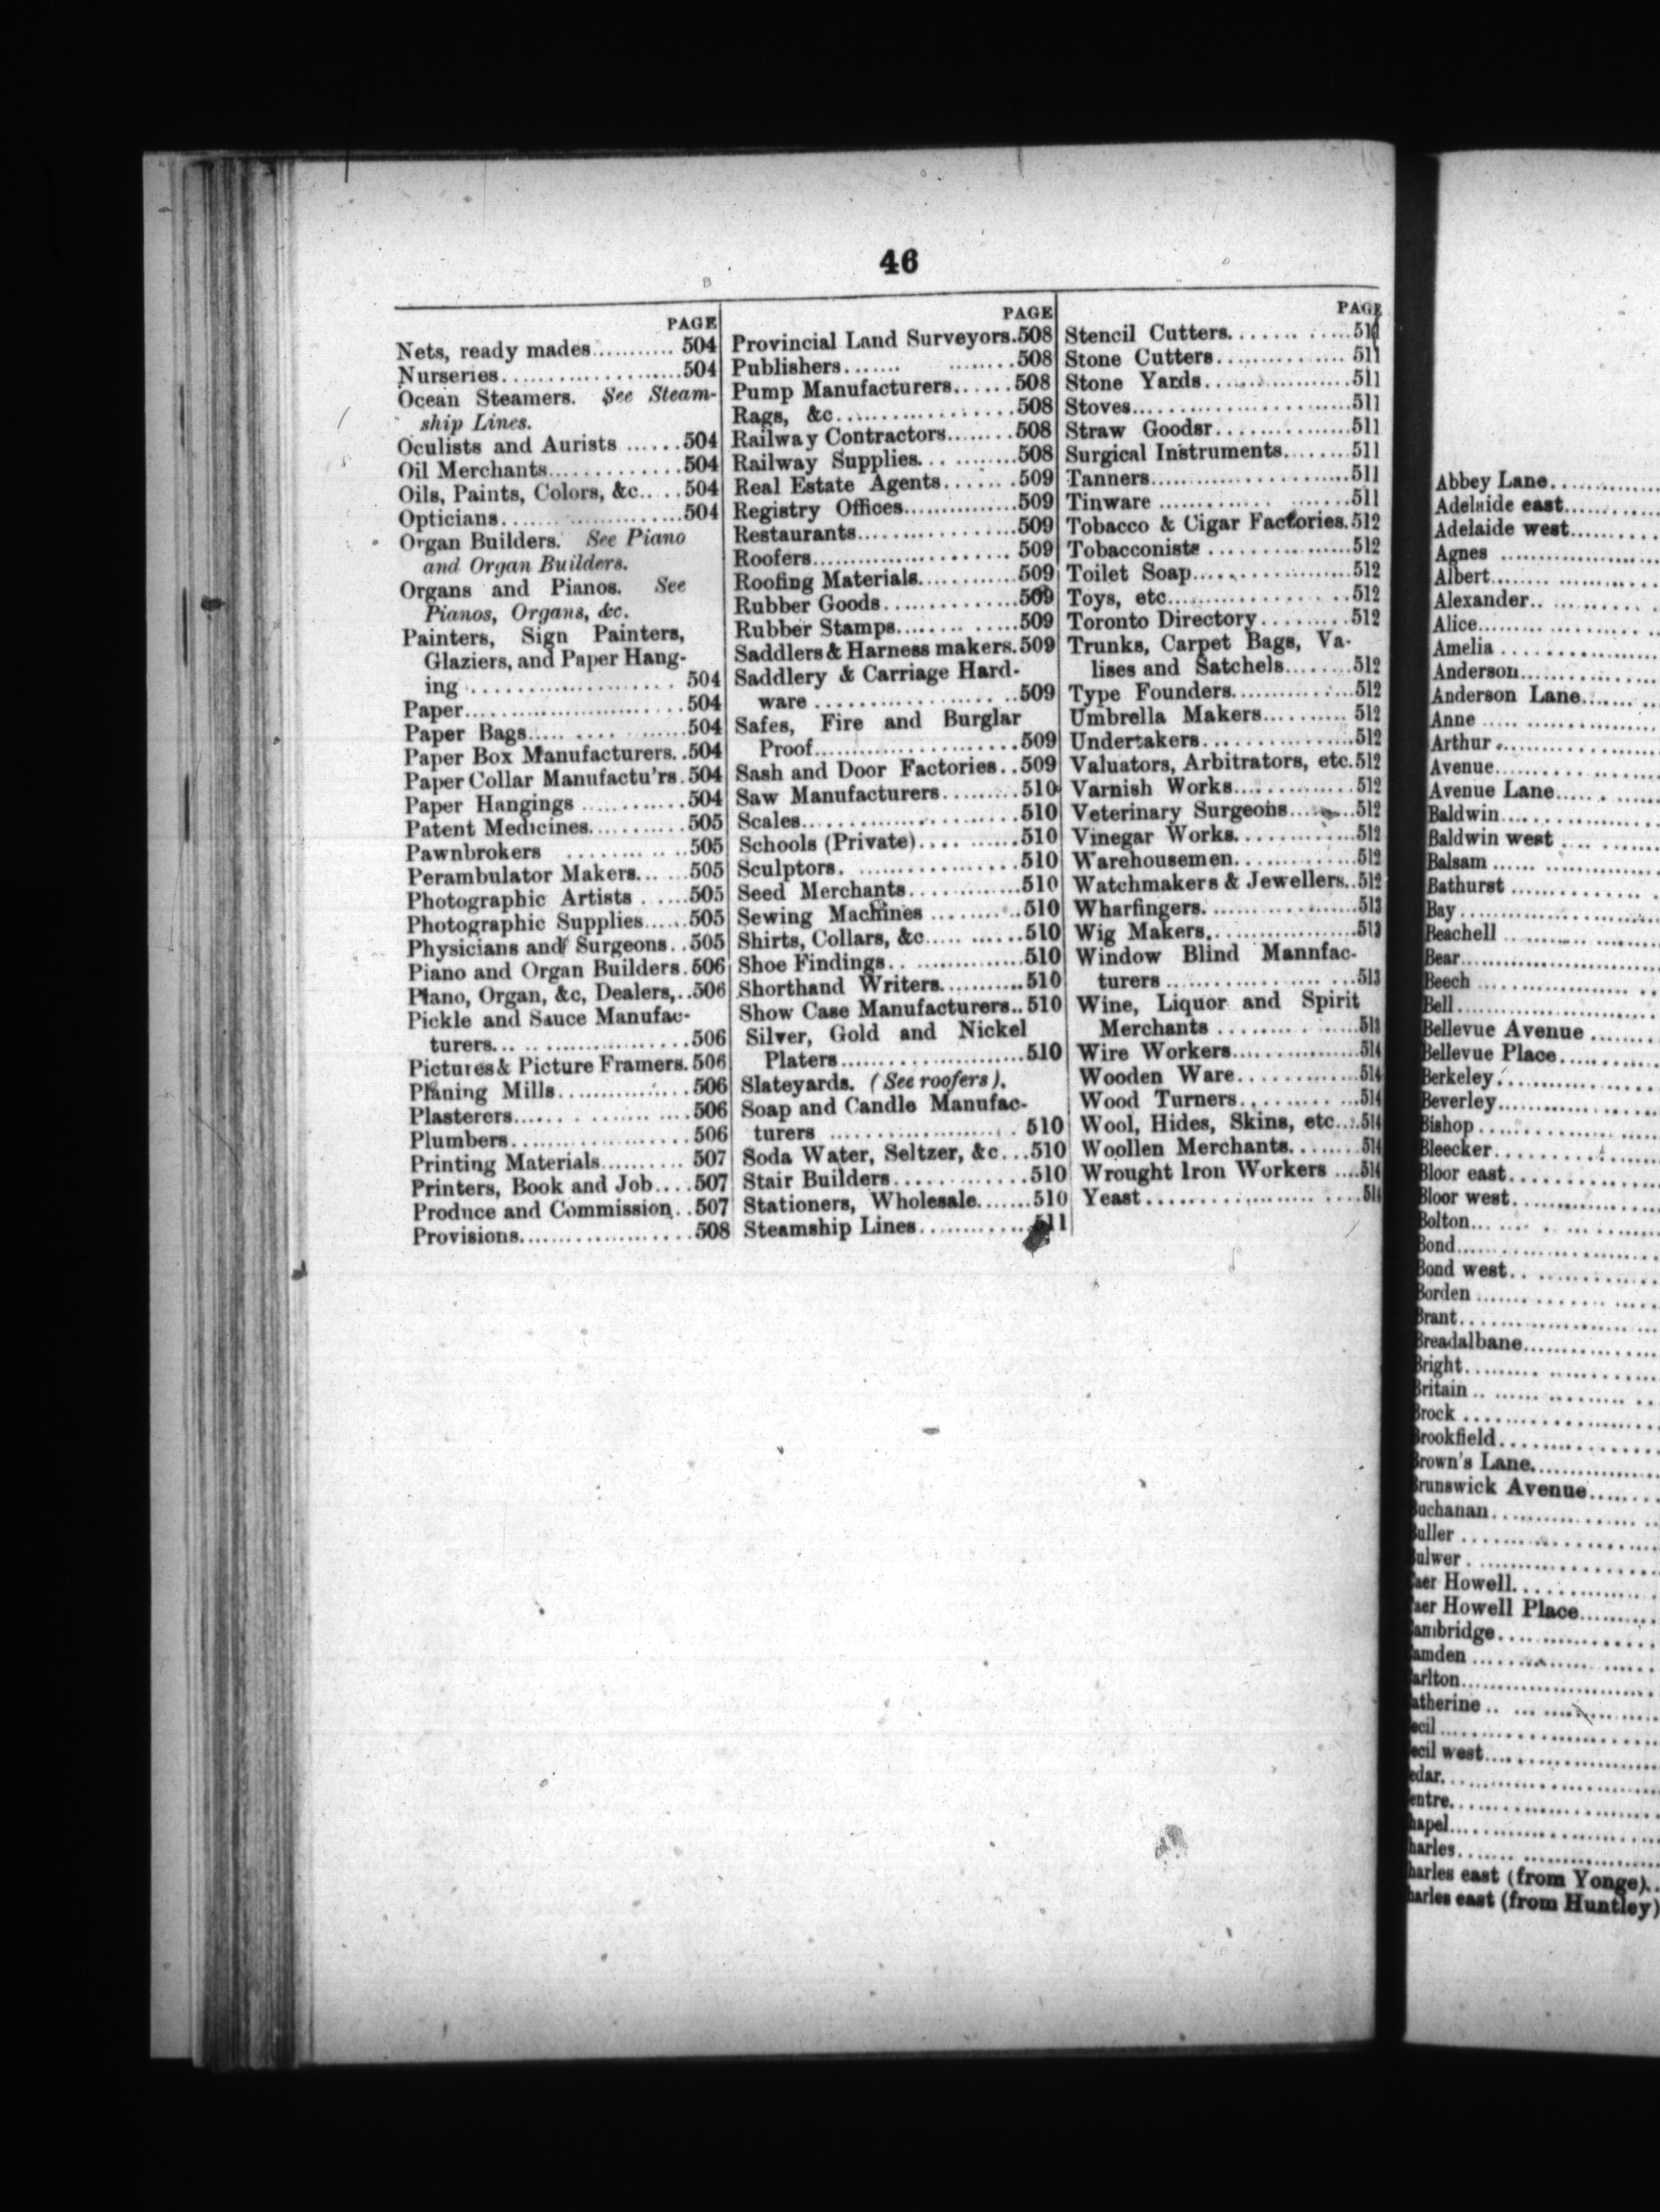 46
PAGE
Nets, ready mades........... 504
Nurseries.....................504
Ocean Steamers. See Steam-
ship Lines.
Oculists and Aurists ......504
Oil Merchants..............504
Oils, Paints, Colors, &c.....504
Opticians.....................504
Organ Builders. See Piano
and Organ Builders.
Organs and Pianos. See
Pianos, Organs, &c.
Painters, Sign Painters,
Glaziers, and Paper Hang-
ing ........................ 504
Paper.........................504
Paper Bags..... .... .......504
Paper Box Manufacturers. .504
Paper Collar Manufactu'rs.504
Paper Hangings ............504
Patent Medicines...........505
Pawnbrokers ........ .. ..505
Perambulator Makers... ...505
Photographic Artists . .....505
Photographic Supplies......505
Physicians and Surgeons. ..505
Piano and Organ Builders.506
Piano, Organ, &c, Dealers,..506
Pickle and Sauce Manufac-
turers... ...................506
Pictures & Picture Framers. 506
Planing Mills...............506
Plasterers..... ....... .....506
Plumbers.....................506
Printing Materials.......... 507
Printers, Book and Job....507
Produce and Commission. ..507
Provisions....................508
PAGE
Provincial Land Surveyors.508
Publishers....... ........508
Pump Manufacturers......508
Rags, &c.....................508
Railway Contractors........508
Railway Supplies... ........508
Real Estate Agents...... .509
Registry Offices..............509
Restaurants..................509
Roofers...................... 509
Roofing Materials...........509
Rubber Goods...............509
Rubber Stamps........ .....509
Saddlers & Harness makers.509
Saddlery & Carriage Hard-
ware .......................509
Safes, Fire and Burglar
Proof.......................509
Sash and Door Factories. ..509
Saw Manufacturers.........510
Scales........................510
Schools (Private)...........510
Sculptors. ..................510
Seed Merchants.............510
Sewing Machines ..........510
Shirts, Collars, &c..... ......510
Shoe Findings. . .............510
Shorthand Writers..........510
Show Case Manufacturers..510
Silver, Gold and Nickel
Platers.....................510
Slateyards. (See roofers).
Soap and Candle Manufac-
turers ..................... 510
Soda Water, Seltzer, &c...510
Stair Builders...............510
Stationers, Wholesale.......510
Steamship Lines............511
PAGE
Stencil Cutters....... . .....511
Stone Cutters............... 511
Stone Yards.................511
Stoves........................511
Straw Goodsr...............511
Surgical Instruments........511
Tanners......................511
Tinware ............. .......511
Tobacco & Cigar Factories.512
Tobacconists ................512
Toilet Soap..................512
Toys, etc.....................512
Toronto Directory.........512
Trunks, Carpet Bags, Va-
lises and Satchels........512
Type Founders..............512
Umbrella Makers.......... 512
Undertakers.................512
Valuators, Arbitrators, etc.512
Varnish Works..............512
Veterinary Surgeons........512
Vinegar Works..............512
Warehousemen..............512
Watchmakers & Jewellers..512
Wharfingers..................513
Wig Makers..................513
Window Blind Mannfac-
turers ......................513
Wine, Liquor and Spirit
Merchants .................513
Wire Workers...............514
Wooden Ware..............514
Wood Turners......... ....514
Wool, Hides, Skins, etc....514
Woollen Merchants.........514
Wrought Iron Workers ....514
Yeast........................514
Abbey Lane
Adelaide east
Adelaide west
Agnes
Albert
Alexander
Alice
Amelia
Anderson
Anderson Lane
Anne
Arthur
Avenue
Avenue Lane
Baldwin
Baldwin west
Balsam
Bathurst
Bay
Beachell
Bear
Beech
Bell
Bellevue Avenue
Bellevue Place
Berkeley
Beverley
Bishop
Bleecker
Bloor east
Bloor west
Bolton
Bond
Bond west
Borden
Brant
Breadalbane
Bright
Britain
Brock
Brookfield
Brown's Lane
Brunswick Avenue
Buchanan
uller
ulwer
aer Howell
aer Howell Place
ambridge
amden
arlton
atherine
ecil
ecil west
edar
entre
hapel
harles
harles east (from Yonge)..
harles east (from Huntley)